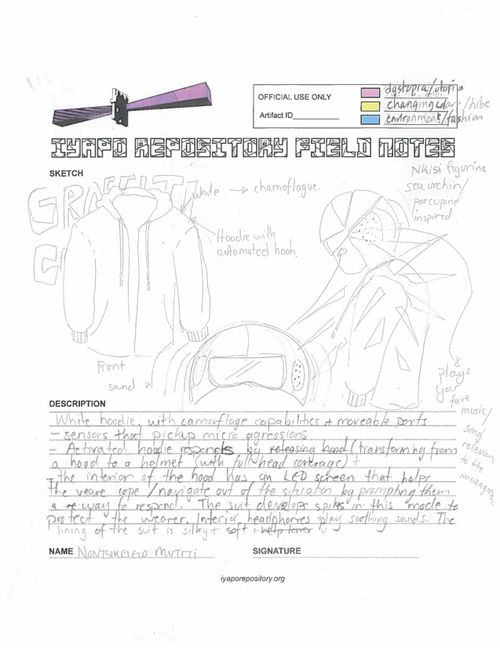 OFFICIAL USE ONLY
Artifact ID
dystopia/utopia
changing color/tube
environment/fashion
IYAPO REPOSITORY FIELD NOTES
SKETCH
Nkisi figurine
sea urchin/
porcupine
inspired
white → chamoflague.
GRAFFITI
Hoodie with
automated hook
Front
sound
plays
your
fave
music/
song
relevant
to the
DESCRIPTION
White hoodie, with camoflage capabilities + moveable parts
- sensors that pickup micro agressions
- Activated hoodie responds by releasing hood (transforming from
a hood to a helmet (with full head coverage) +
- the interior of the hood has an LED screen that helps
The weare cope/navigate out of the situation by prompting them
a way to respond. The suit develops spikes in this mode to
protect the wearer, interior headphones play soothing sounds. The
lining of the suit is silky + soft
NAME Nontsikelelo Mutiti
SIGNATURE
iyaporepository.org